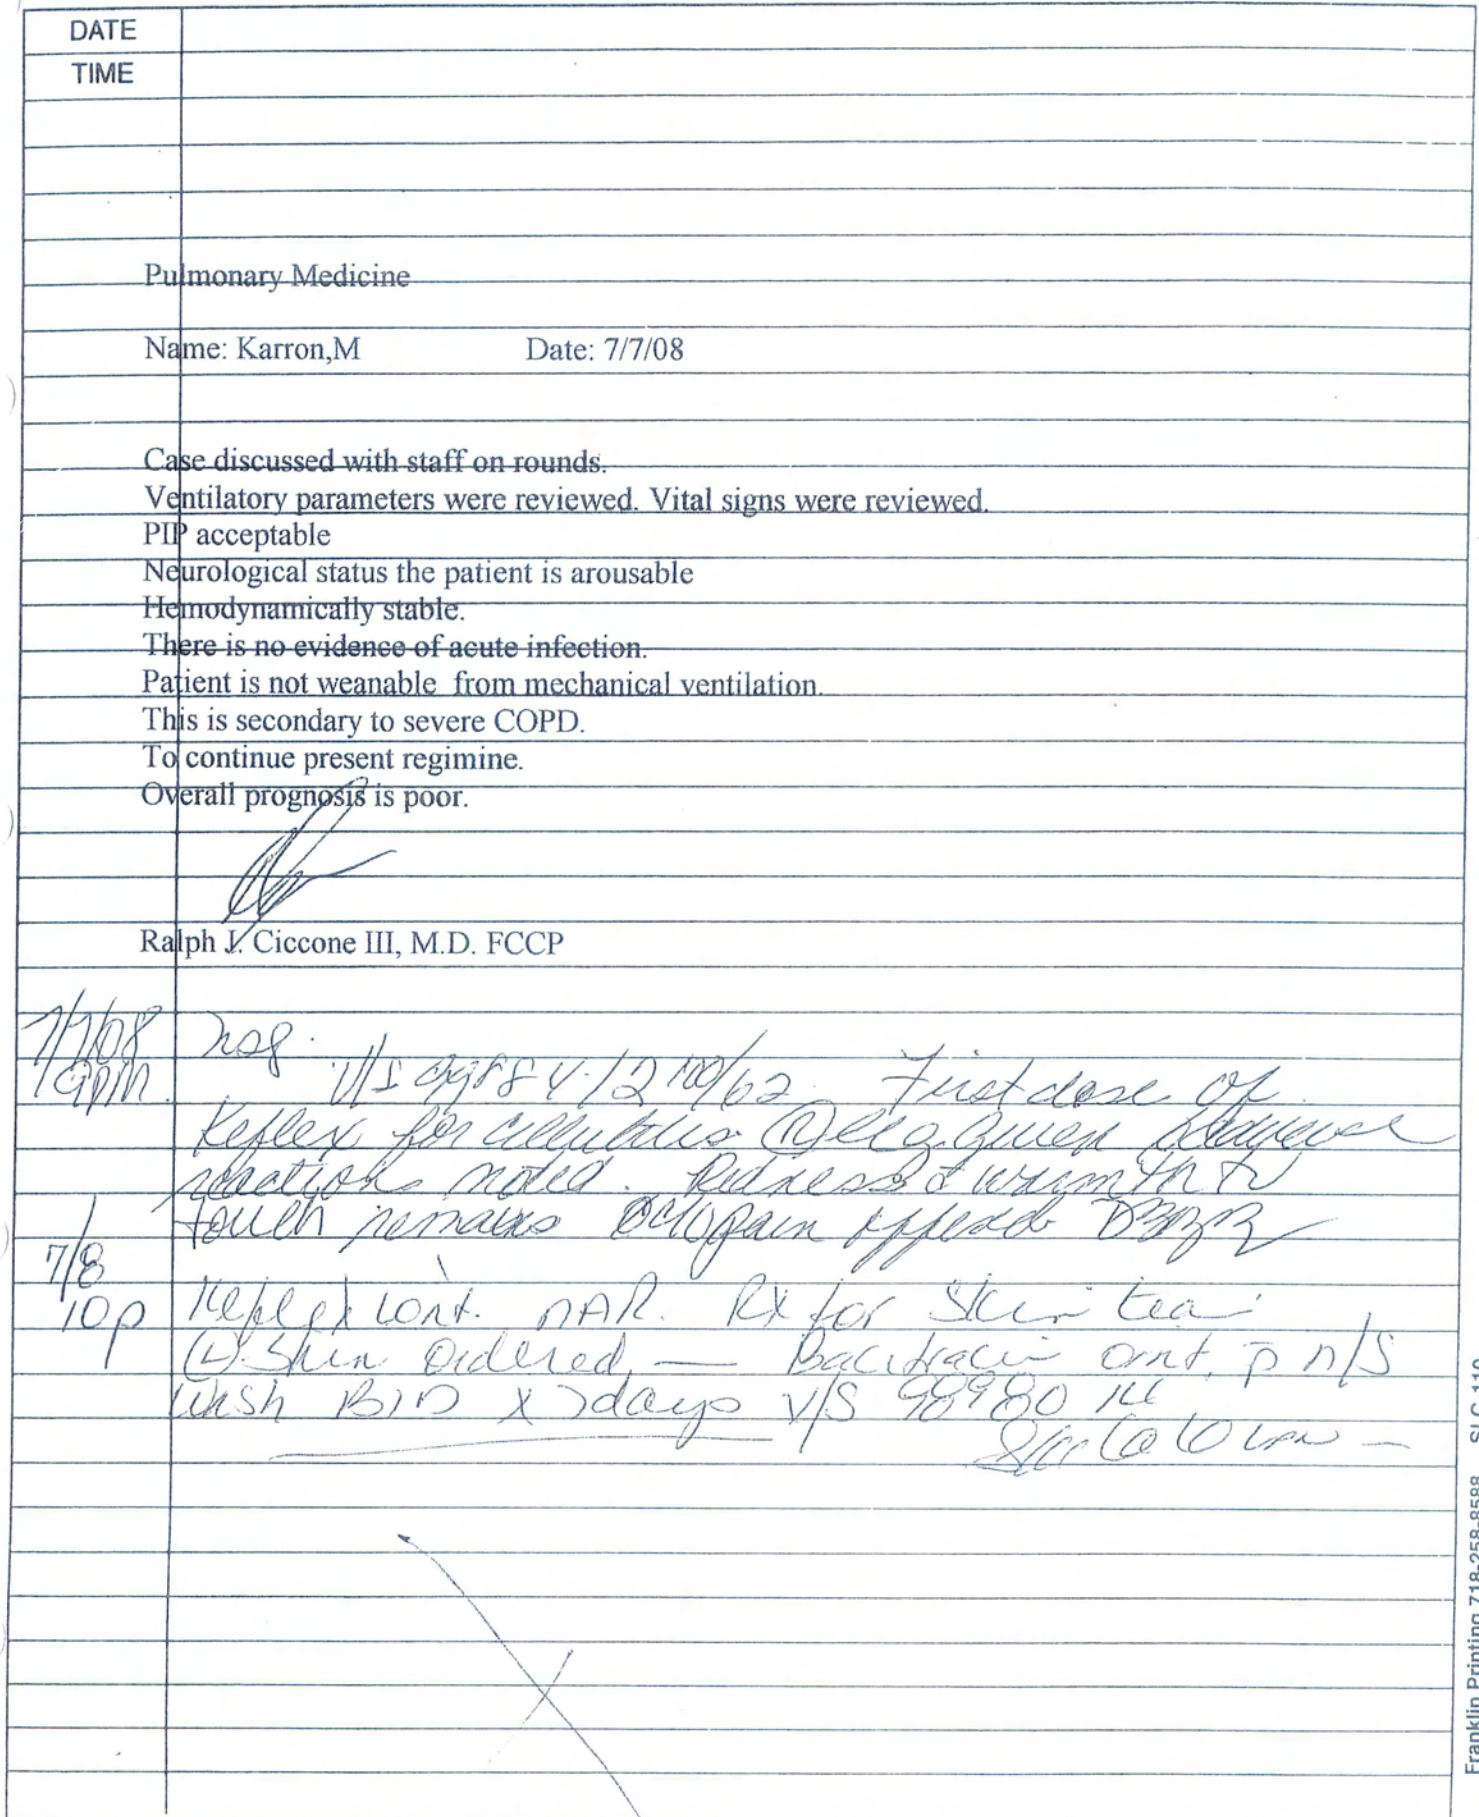 DATE
TIME
Pulmonary Medicine
Name: Karron,M Date: 7/7/08
Case discussed with staff on rounds.
Ventilatory parameters were reviewed. Vital signs were reviewed.
PIP acceptable
Neurological status the patient is arousable
Hemodynamically stable.
There is no evidence of acute infection.
Patient is not weanable from mechanical ventilation.
This is secondary to severe COPD.
To continue present regimine.
Overall prognosis is poor.
Ralph J. Ciccone III, M.D. FCCP
7/7/08 nsg.
9pm. V/S 100/62. First dose of
Keflex for cellulitis (R) leg given
reactions noted. Redness & warmth to
touch remains
7/8
10p Keflex cont. Rx for Skin tear
(L) Shin ordered — Bacitracin oint. p n/S
wash BID x 7days V/S
Franklin Printing 718-258-8588 SLC-110